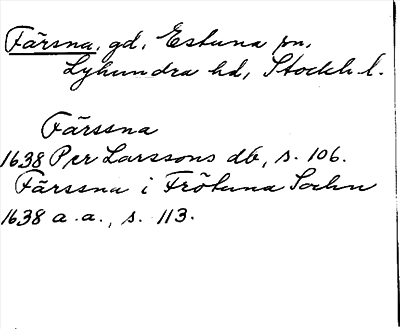 Färsna, gd, Estuna sn,
Lyhundra hd, Stockh. l.
Färssna
1638 Per Larssons db, s. 106.
Färssna i Frötuna Sochn
1638 a.a., s. 113.